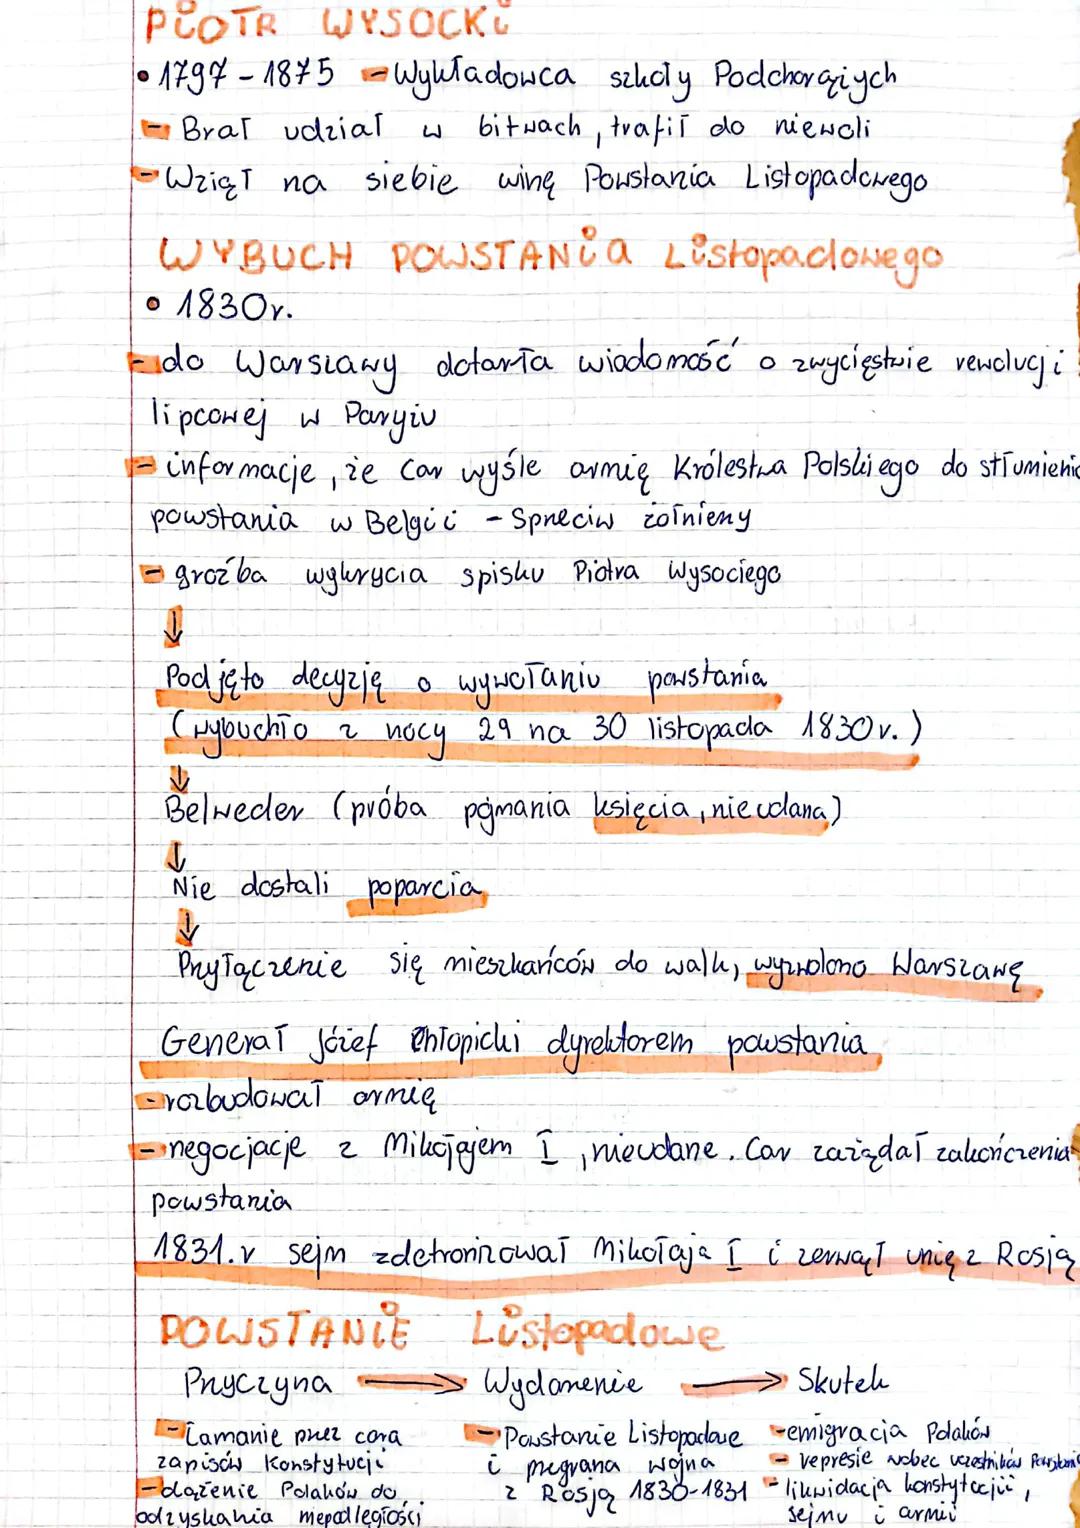 PiOTR WYSOCKi
• 1797 - 1875 - Wykładowca szkoły Podchorążych
- Brał udział w bitwach, trafił do niewoli
- Wziął na siebie winę Powstania Listopadowego
WYBUCH POWSTANia Listopadowego
• 1830r.
- do Warszawy dotarła wiadomość o zwycięstwie rewolucji
lipcowej w Paryżu
- informacje, że Car wyśle armię Królestwa Polskiego do stłumienia
powstania w Belgii - Sprzeciw żołnierzy
- groźba wykrycia spisku Piotra Wysociego
↓
Podjęto decyzję o wywołaniu powstania
(wybuchło z nocy 29 na 30 listopada 1830r.)
↓
Belweder (próba pojmania księcia, nieudana)
↓
Nie dostali poparcia
↓
Przyłączenie się mieszkańców do walk, wyzwolono Warszawę
Generał Józef Chłopicki dyrektorem powstania
- rozbudował armię
- negocjacje z Mikołajem I, nieudane. Car zażądał zakończenia
powstania
1831.r sejm zdetronizował Mikołaja I i zerwał unię z Rosją
POWSTANiE Listopadowe
Przyczyna → Wydarzenie → Skutek
- Łamanie przez cara zapisów Konstytucji
- dążenie Polaków do odzyskania niepodległości
- Powstanie Listopadowe
i przegrana wojna
z Rosją 1830-1831
- emigracja Polaków
- represje wobec uczestników Powstania
- likwidacja konstytucji,
sejmu i armii